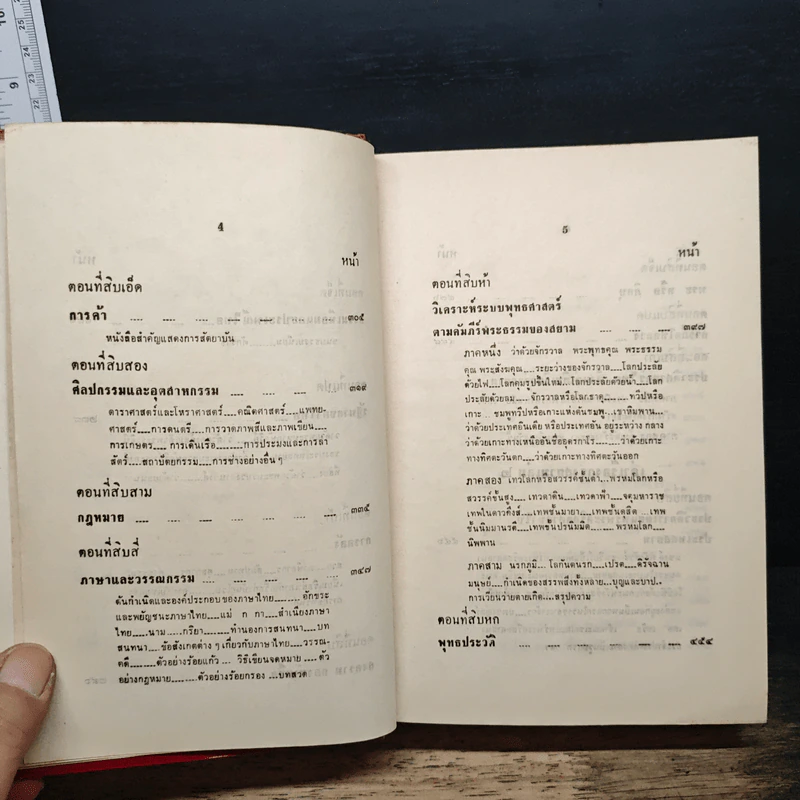 4
หน้า
ตอนที่สิบเอ็ด
การค้า .... .... .... .... .... .... ๓๐๕
หนังสือสำคัญแสดงการสัตยาบัน
ตอนที่สิบสอง
ศิลปกรรมและอุตสาหกรรม .... .... .... ๓๑๙
ดาราศาสตร์และโหราศาสตร์....คณิตศาสตร์....แพทย-
ศาสตร์....การดนตรี....การวาดภาพสีและภาพเขียน....
การเกษตร....การเดินเรือ....การประมงและการล่า
สัตว์....สถาปัตยกรรม....การช่างอย่างอื่นๆ
ตอนที่สิบสาม
กฎหมาย .... .... .... .... .... .... ๓๓๕
ตอนที่สิบสี่
ภาษาและวรรณกรรม .... .... .... .... ๓๔๗
ต้นกำเนิดและองค์ประกอบของภาษาไทย....อักขระ
และพยัญชนะภาษาไทย....แม่ ก กา....สำเนียงภาษา
ไทย....นาม....กริยา....ทำนองการสนทนา....บท
สนทนา....ข้อสังเกตต่างๆเกี่ยวกับภาษาไทย....วรรณ-
คดี....ตัวอย่างร้อยแก้ว ... วิธีเขียนจดหมาย....ตัว
อย่างกฎหมาย....ตัวอย่างร้อยกรอง ...บทสวด
5
หน้า
ตอนที่สิบห้า
วิเคราะห์ระบบพุทธศาสตร์
ตามคัมภีร์พระธรรมของสยาม .... .... .... ๓๙๗
ภาคหนึ่ง ว่าด้วยจักรวาล พระพุทธคุณ พระธรรม
คุณ พระสังฆคุณ....ระยะว่างของจักรวาล....โลกประลัย
ด้วยไฟ....โลกคุมรูปขึ้นใหม่....โลกประลัยด้วยน้ำ....โลก
ประลัยด้วยลม....จักรวาลหรือโลกธาตุ....ทวีปหรือ
เกาะ ....ชมพูทวีปหรือเกาะแห่งต้นชมพู....เขาหิมพาน....
ว่าด้วยประเทศอินเดีย หรือประเทศอัน อยู่ระหว่าง กลาง
ว่าด้วยเกาะทางเหนืออันชื่ออุดรกาโร....ว่าด้วยเกาะ
ทางทิศตะวันตก....ว่าด้วยเกาะทางทิศตะวันออก
ภาคสอง เทวโลกหรือสวรรค์ชั้นต่ำ...พรหมโลกหรือ
สวรรค์ชั้นสูง.... เทวดาดิน....เทวดาฟ้า....จตุมหาราช
เทพในดาวดึงส์....เทพชั้นมายา....เทพชั้นดุสิต ...เทพ
ชั้นนิมมานรดี....เทพชั้นปรนิมมิต....พรหมโลก....
นิพพาน
ภาคสาม นรกภูมิ....โลกันตนรก....เปรต....ดิรัจฉาน
มนุษย์....กำเนิดของสรรพสิ่งทั้งหลาย....บุญและบาป....
การเวียนว่ายตายเกิด....สรุปความ
ตอนที่สิบหก
พุทธประวัติ .... .... .... .... .... .... ๔๕๔